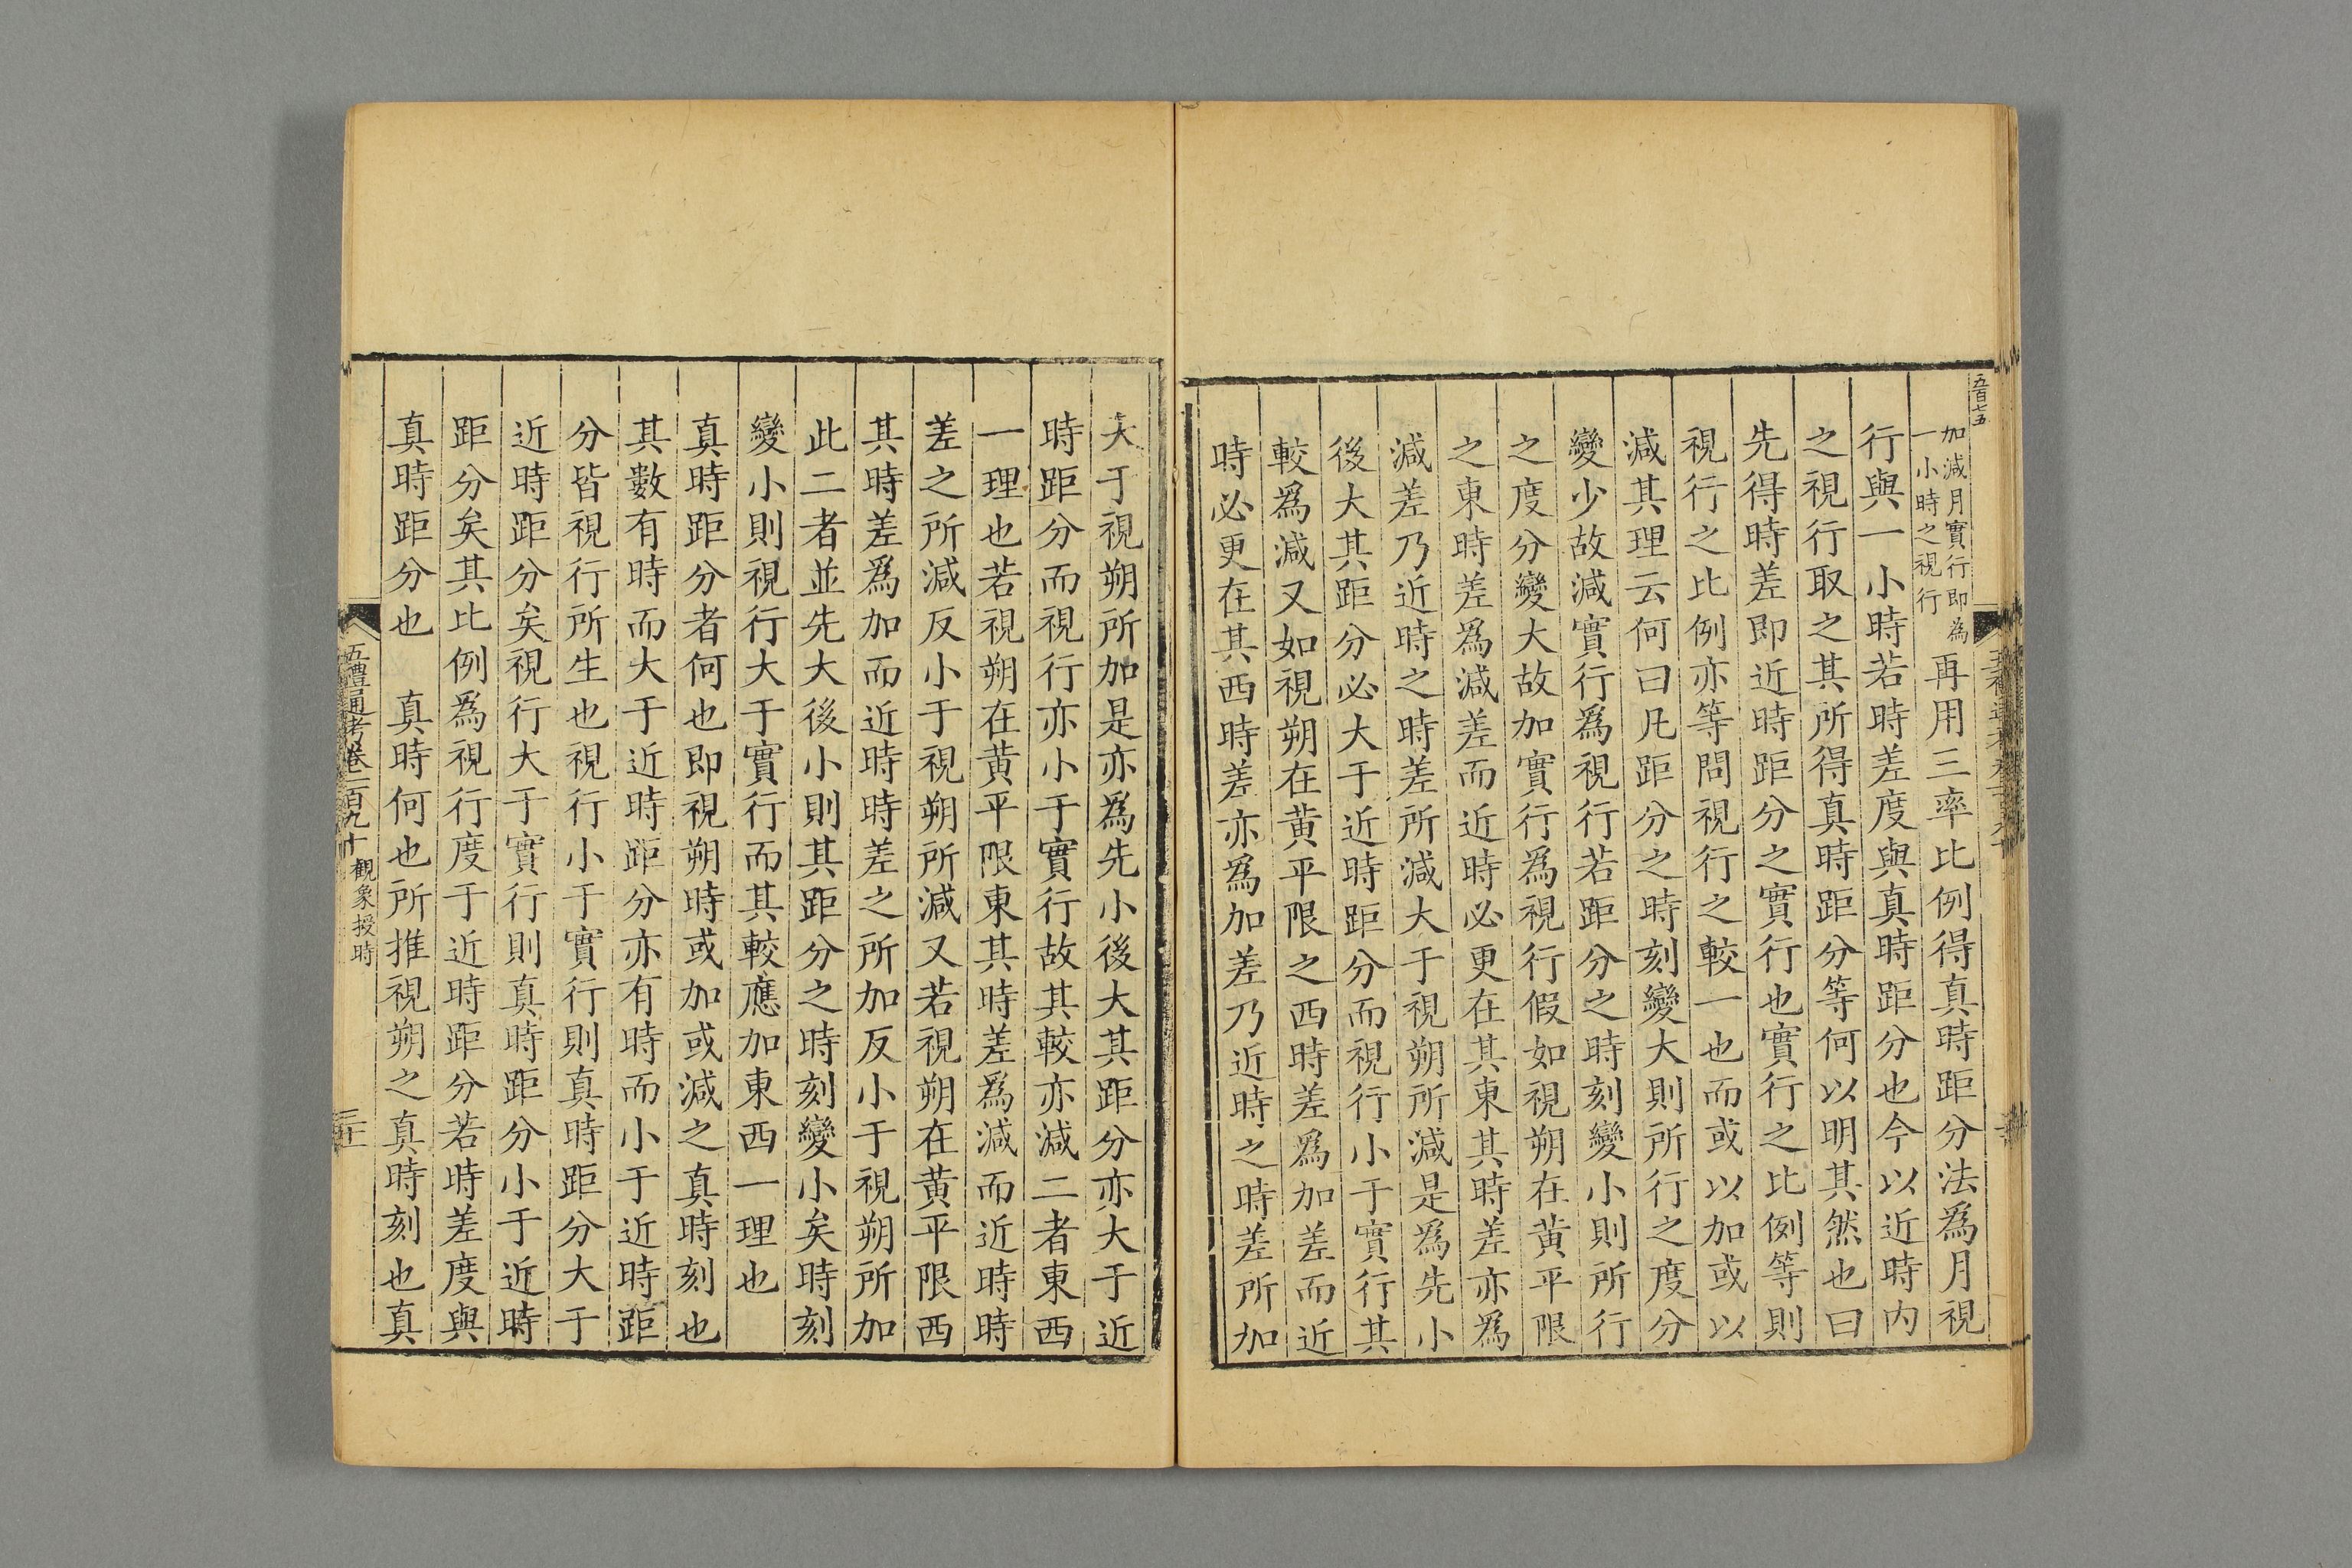 五百七五
加減月實行即為
一小時之視行
再用三率比例得真時距分法爲月視
行與一小時若時差度與真時距分也今以近時内
之視行取之其所得真時距分等何以明其然也曰
先得時差即近時距分之實行也實行之比例等則
視行之比例亦等問視行之較一也而或以加或以
減其理云何曰凡距分之時刻變大則所行之度分
變少故減實行爲視行若距分之時刻變小則所行
之度分變大故加實行爲視行假如視朔在黄平限
之東時差爲減差而近時必更在其東其時差亦爲
減差乃近時之時差所減大于視朔所減是爲先小
後大其距分必大于近時距分而視行小于實行其
較爲減又如視朔在黄平限之西時差爲加差而近
時必更在其西時差亦爲加差乃近時之時差所加
大于視朔所加是亦爲先小後大其距分亦大于近
時距分而視行亦小于實行故其較亦減二者東西
一理也若視朔在黄平限東其時差爲減而近時時
差之所減反小于視朔所減又若視朔在黄平限西
其時差爲加而近時時差之所加反小于視朔所加
此二者並先大後小則其距分之時刻變小矣時刻
變小則視行大于實行而其較應加東西一理也
真時距分者何也即視朔時或加或減之真時刻也
其數有時而大于近時距分亦有時而小于近時距
分皆視行所生也視行小于實行則真時距分大于
近時距分矣視行大于實行則真時距分小于近時
距分矣其比例爲視行度于近時距分若時差度與
真時距分也　真時何也所推視朔之真時刻也真
五禮通考卷一百九十 觀象授時